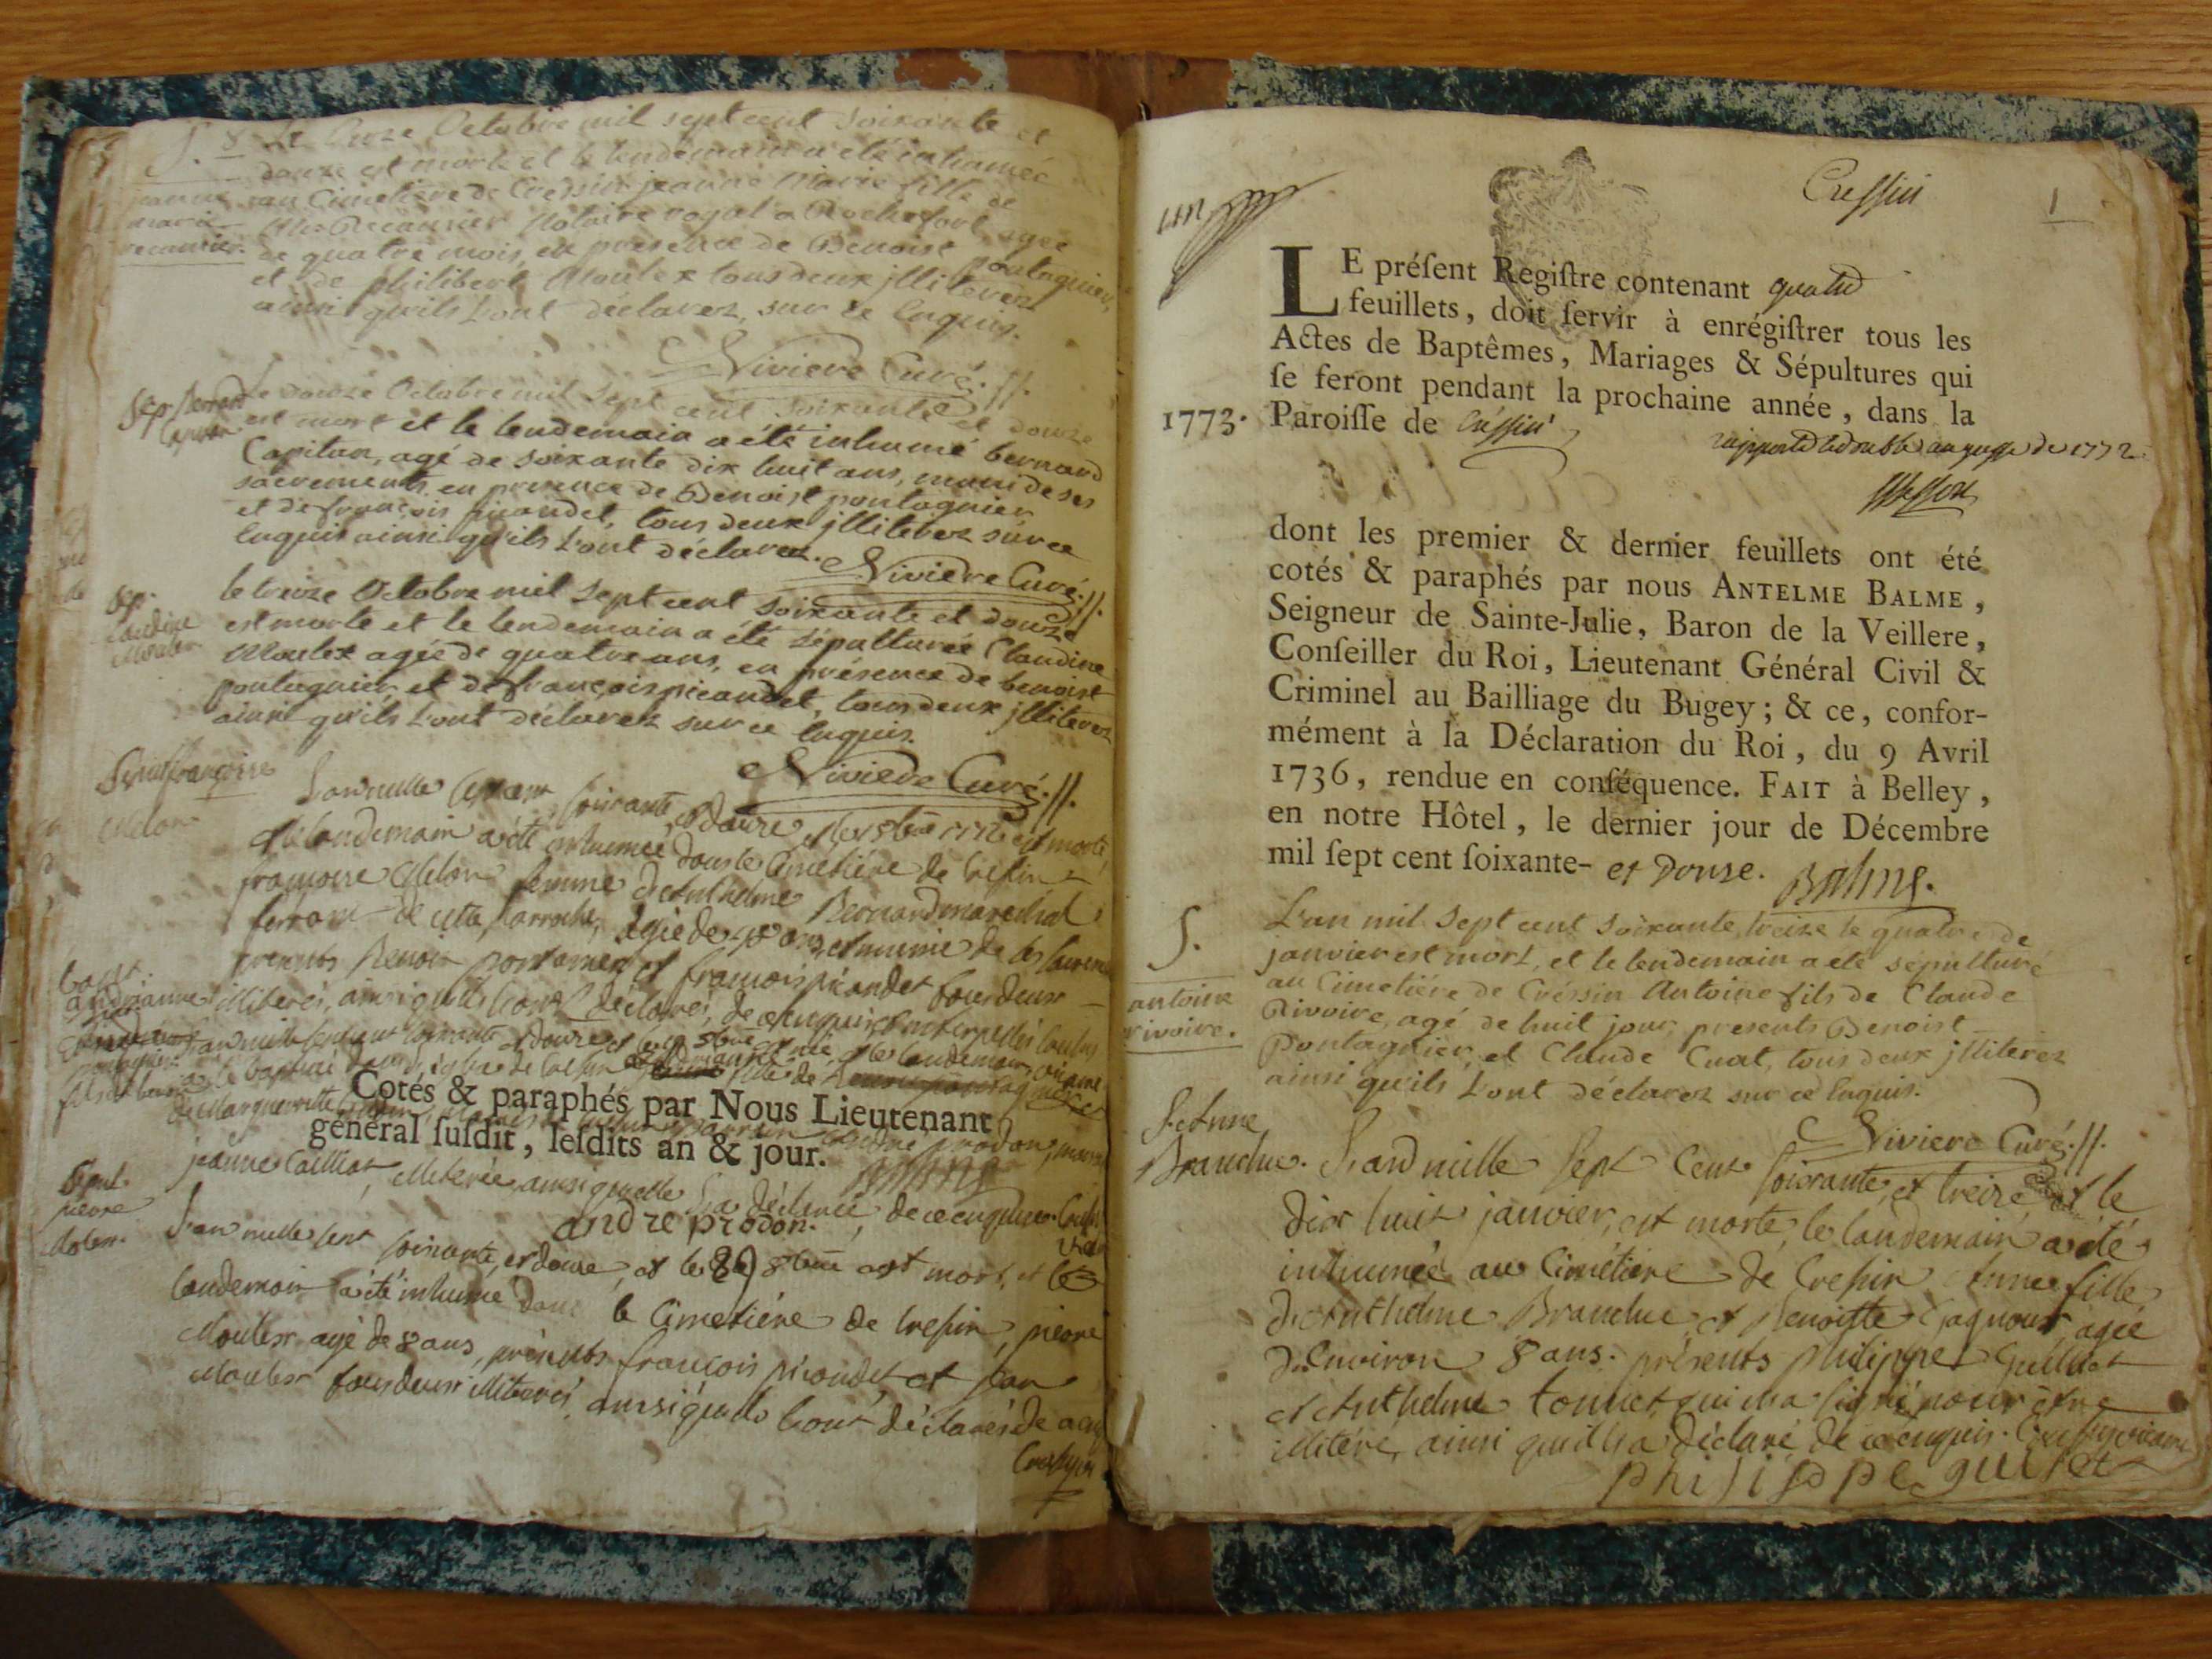 S. 8 Le onze Octobre mil sept cent soixante et
douze est morte et le lendemain a été inhumée
au Cimetière de Cressin jeanne Marie fille de
Me Récamier Notaire royal a Rochefort, agée
de quatre mois, en presence de Benoist pontagnier,
et de philibert Moulex tous deux jlliterez
ainsi qu'ils L'ont déclarez, sur ce Enquis.
jeanne
marie
recamier.
Riviere Curé.
Sep. Bernard
Capitan
Le douze Octobre mil sept cent soixante et douze
est mort et le lendemain a été inhumé bernard
Capitan, agé de soixante dix huit ans, muni de ses
sacrements en presence de Benoist pontagnier
et de françois picandet, tous deux jlliterez sur ce
Enquis ainsi qu'ils L'ont déclarez.
Riviere Curé.
Sep.
Claudine
Moulex
le treize Octobre mil sept cent soixante et douze
est morte et le lendemain a été sépulturée Claudine
Moulex agée de quatre ans, en présence de benoist
pontagnier et de françois picandet, tous deux jlliterez
ainsi qu'ils L'ont déclarez sur ce Enquis.
Riviere Curé.
Sepult françoise
Melon
L'an mille sept cent soixante, et douze, est morte,
et le landemain a été inhumée dans le Cimetiere de Cressin
francoise Melon femme d'Anthelme Bernard marechal
ferrant de cette parroche, agée de ans, et munie de ses sacrem
presents Benoit pontanier et francois picandet tous deux
illiterés, ainsi quils l'ont déclarés, de ce enquis et interpellés
Bapt.
andrianne
L'an mille sept cent soixante et douze et le est née et le landemain
a été baptisé dans l'église de Cressin andrianne fille de
de Marguerite parrain andré prodon, marr
Cotés & paraphés par Nous Lieutenant
général ſuſdit, leſdits an & jour.
Balme
jeanne Calliat, illiterée, ainsi quelle l'a déclaré, de ce enquise.
andre prodon.
Sepult
pierre
Molex.
L'an mille sept soixante, et douze, et le 8bre est mort, et le
landemain a été inhumé dans le Cimetiére de Cressin, pierre
Moulex agé de 8 ans, présents francois picandet et Jean
Moulex tous deux illiterés, ainsi quils l'ont déclarés de ce enq
Cressin
1
un
LE préſent Regiſtre contenant quatre
feuillets, doit ſervir à enrégiſtrer tous les
Actes de Baptêmes, Mariages & Sépultures qui
ſe feront pendant la prochaine année, dans la
1773. Paroiſſe de Créssin
rapporté le double au greffe de 1772
dont les premier & dernier feuillets ont été
cotés & paraphés par nous ANTELME BALME,
Seigneur de Sainte-Julie, Baron de la Veillere,
Conſeiller du Roi, Lieutenant Général Civil &
Criminel au Bailliage du Bugey; & ce, confor-
mément à la Déclaration du Roi, du 9 Avril
1736, rendue en conſéquence. FAIT à Belley,
en notre Hôtel, le dernier jour de Décembre
mil ſept cent ſoixante- et Douse.
Balme.
S.
antoine
rivoire.
L'an mil sept cent soixante treize le quatre de
janvier est mort, et le lendemain a eté sépulturé
au Cimetiére de Créssin Antoine fils de Claude
Rivoire, agé de huit jour, presents Benoist
Pontagnier, et Claude Cuat, tous deux jlliterez
ainsi qu'ils L'ont déclarez sur ce Enquis.
Riviere Curé.
S. Anne
Branche.
L'an mille sept Cent soixante, et treize et le
dix huit janvier, est morte, le landemain a été
inhumée au Cimétiere de Cressin Anne fille
d'Anthelme Branche et Benoitte Gagnoux, agée
d'Environ 8 ans. présents philippe Guillet
et Anthelme tonnet, qui n'a signé pour être
illitéré, ainsi quil l'a déclaré de ce enquis.
philippe guillet